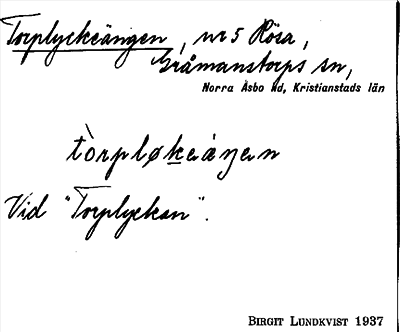 Torplyckeängen, nr 5 Rösa,
Gråmanstorps sn,
Norra Åsbo hd, Kristianstads län
tòrpløkeáŋen
Vid "Torplyckan".
BIRGIT LUNDKVIST 1937